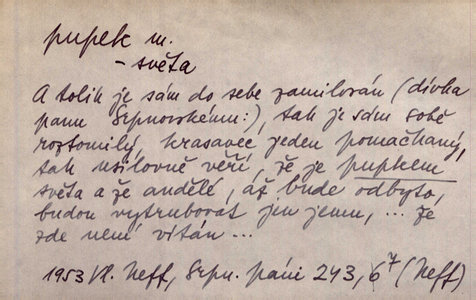 pupek m.
- světa
A tolik je sám do sebe zamilován (dívka
panu Srpnovskému:), tak je sám sobě
roztomilý, krasavec jeden pomačkaný,
tak usilovně věří, že je pupkem
světa a že andělé, až bude odbyto,
budou vytrubovat jen jemu, ... že
zde není vítán ...
1953 Vl. Neff, Srpn. páni 243, 6⁷ (Neff)